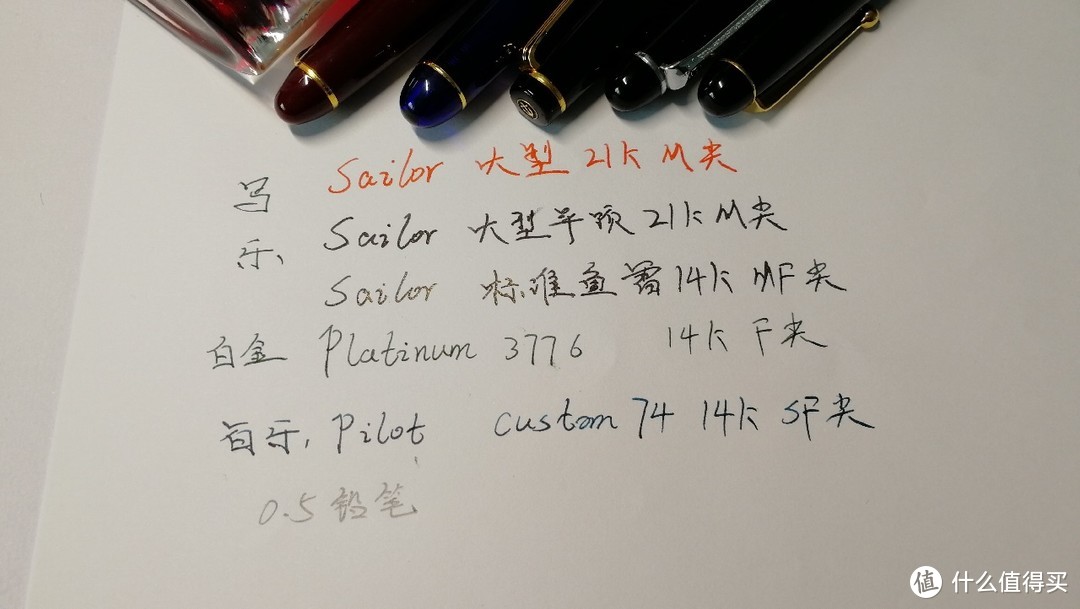 写乐 Sailor 大型 21K M尖
Sailor 大型平顶 21K M尖
Sailor 标准鱼雷 14K MF尖
白金 Platinum 3776 14K F尖
百乐 Pilot custom 74 14K SF尖
0.5 铅笔
值 什么值得买